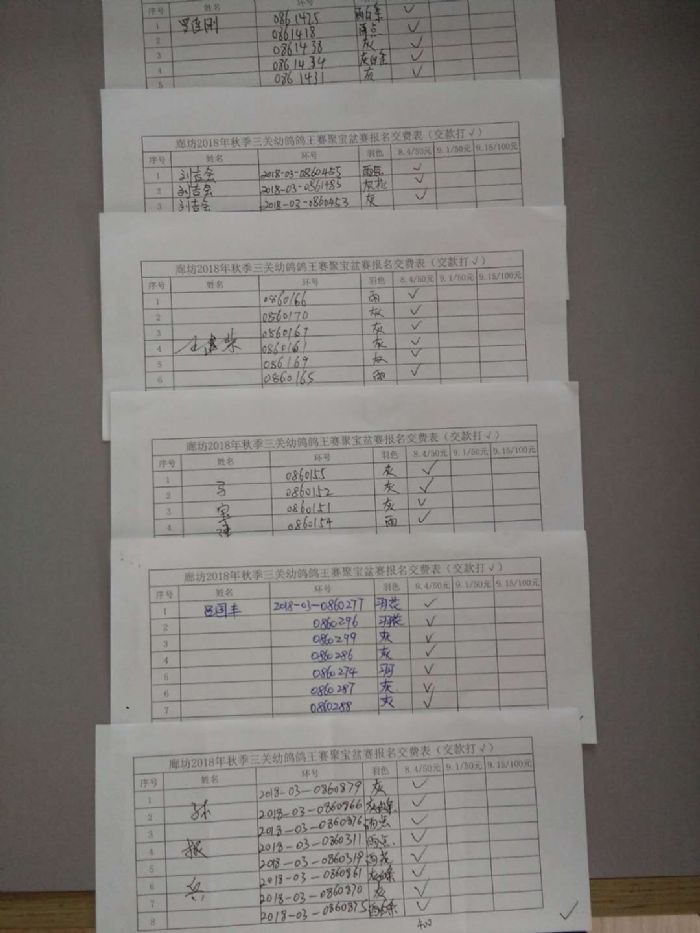 序号 姓名
1 罗 刚 0861425 雨白条 ✓
2 0861418 雨点 ✓
3 0861438 灰 ✓
4 0861434 灰白条 ✓
5 0861431 灰 ✓
廊坊2018年秋季三关幼鸽鸽王赛聚宝盆赛报名交费表（交款打√）
序号 姓名 环号 羽色 8.4/50元 9.1/50元 9.15/100元
1 刘吉会 2018-03-0860455 雨点 ✓
2 刘吉会 2018-03-0861483 灰花 ✓
3 刘吉会 2018-03-0860453 灰 ✓
廊坊2018年秋季三关幼鸽鸽王赛聚宝盆赛报名交费表（交款打√）
序号 姓名 环号 羽色 8.4/50元 9.1/50元 9.15/100元
1 0860166 雨 ✓
2 0860170 灰 ✓
3 0860167 灰 ✓
4 0860161 灰 ✓
5 086169 灰 ✓
6 0860165 雨 ✓
廊坊2018年秋季三关幼鸽鸽王赛聚宝盆赛报名交费表（交款打√）
序号 姓名 环号 羽色 8.4/50元 9.1/50元 9.15/100元
1 0860155 灰 ✓
2 马 0860152 灰 ✓
3 0860151 灰 ✓
4 0860154 雨 ✓
廊坊2018年秋季三关幼鸽鸽王赛聚宝盆赛报名交费表（交款打√）
序号 姓名 环号 羽色 8.4/50元 9.1/50元 9.15/100元
1 吕国丰 2018-03-0860277 雨花 ✓
2 0860296 雨花 ✓
3 0860299 灰 ✓
4 0860286 灰 ✓
5 0860274 雨 ✓
6 0860287 灰 ✓
7 0860288 灰 ✓
廊坊2018年秋季三关幼鸽鸽王赛聚宝盆赛报名交费表（交款打√）
序号 姓名 环号 羽色 8.4/50元 9.1/50元 9.15/100元
1 2018-03-0860879 灰 ✓
2 孙 2018-03-0860866 灰白条 ✓
3 2018-03-0860876 雨点 ✓
4 振 2018-03-0860311 雨点 ✓
5 2018-03-0860319 雨花 ✓
6 兵 2018-03-0860861 灰白条 ✓
7 2018-03-0860870 灰 ✓
8 2018-03-0860875 雨白条 ✓
400 ✓